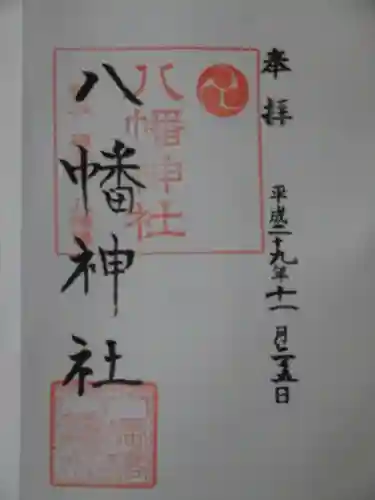 奉拝
平成二十九年十一月二十五日
八幡神社
八幡神社